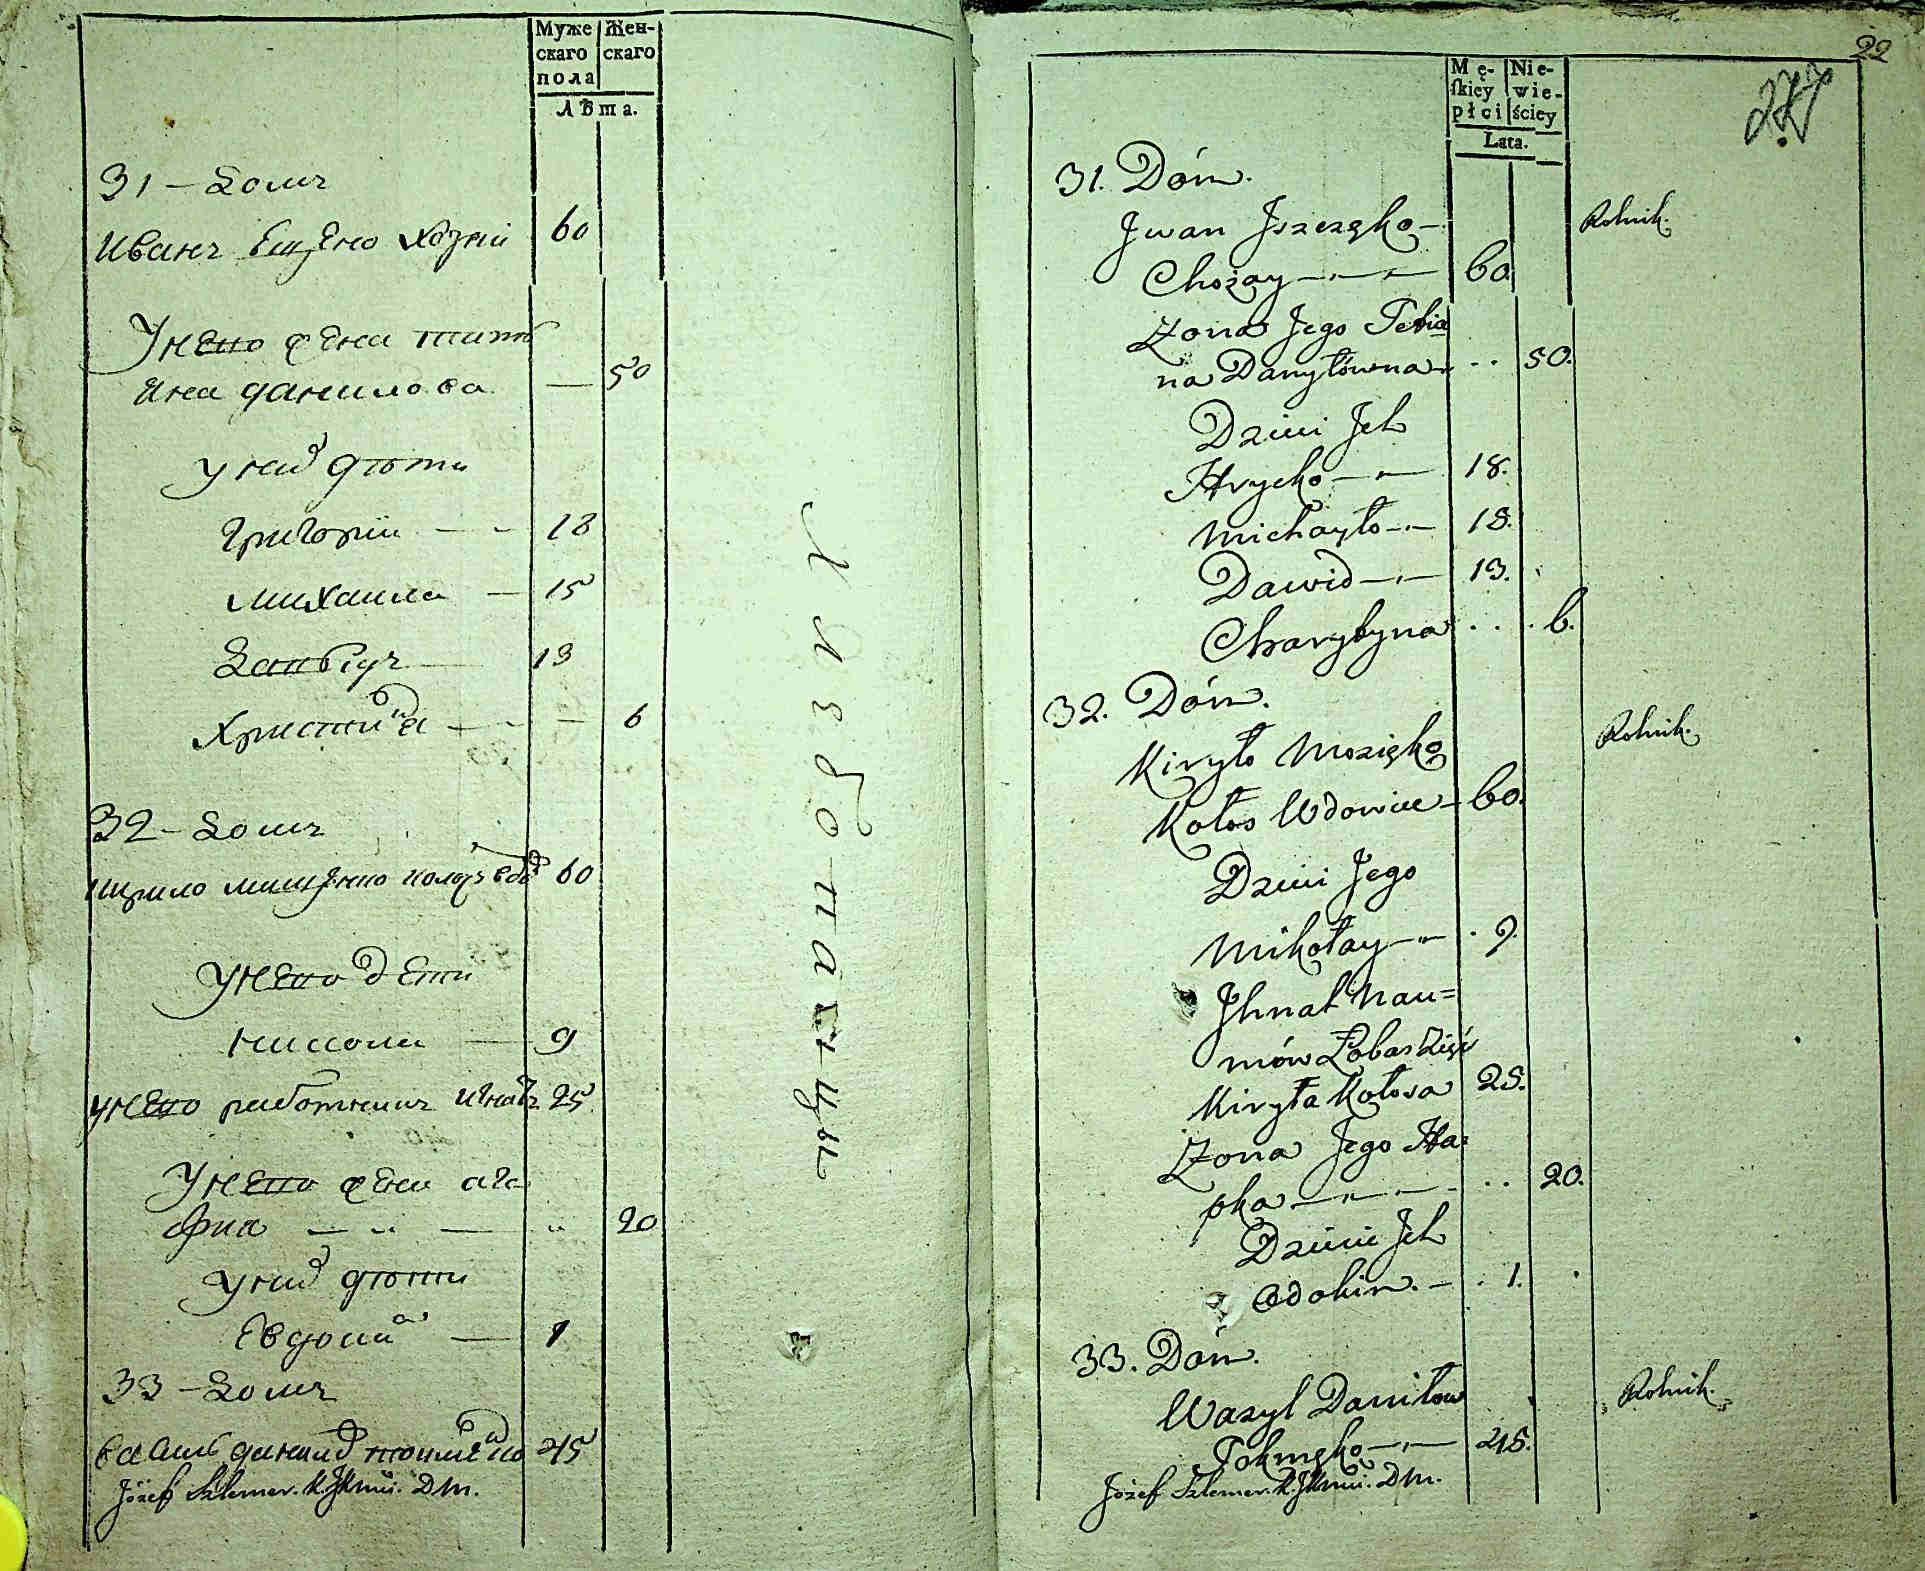 Муже
скаго
пола
Жен-
скаго
Лѣта.
31 – Домъ
Иванъ Ещенко Хозаи 60
У него жена татя
яна данилова — 50
у них дѣти
Григории — 18
Михаила — 15
Давыдъ — 13
Христина — 6
32 – Домъ
Кирило мищенко колосъ вдов 60
У него дети
Никола — 9
у него работникъ Игнатъ 25
У него жена ага
фия — 20
у них дѣти
Евдоким — 1
33 – Домъ
василь данилов 45
Józef Szlemer. DM.
Хлѣбопашцы
22
Mę-
ſkiey
płci
Nie-
wie-
ściey
Lata.
31. Dóm.
Jwan Jszczęko – Rolnik.
Chożay — 60
Zona Jego Tetia
na Danyłówna .. 50.
Dzieci Jch
Hrycko — 18.
Michayło — 15.
Dawid — 13.
Charytyna . . . 6.
32. Dóm.
Kiryło Mozięko Rolnik.
Kołos Wdowiec – 60.
Dzieci Jego
Mikołay — . 9.
Jhnat Nau=
mów Łobas Zięć
Kiryła Kołosa 25.
Zona Jego Ha=
pka — .. 20.
Dzieci Jch
Odokim. – . 1.
33. Dóm.
Wazyl Daniłow Rolnik.
Tokmęko — 45.
Józef Szlemer. DM.